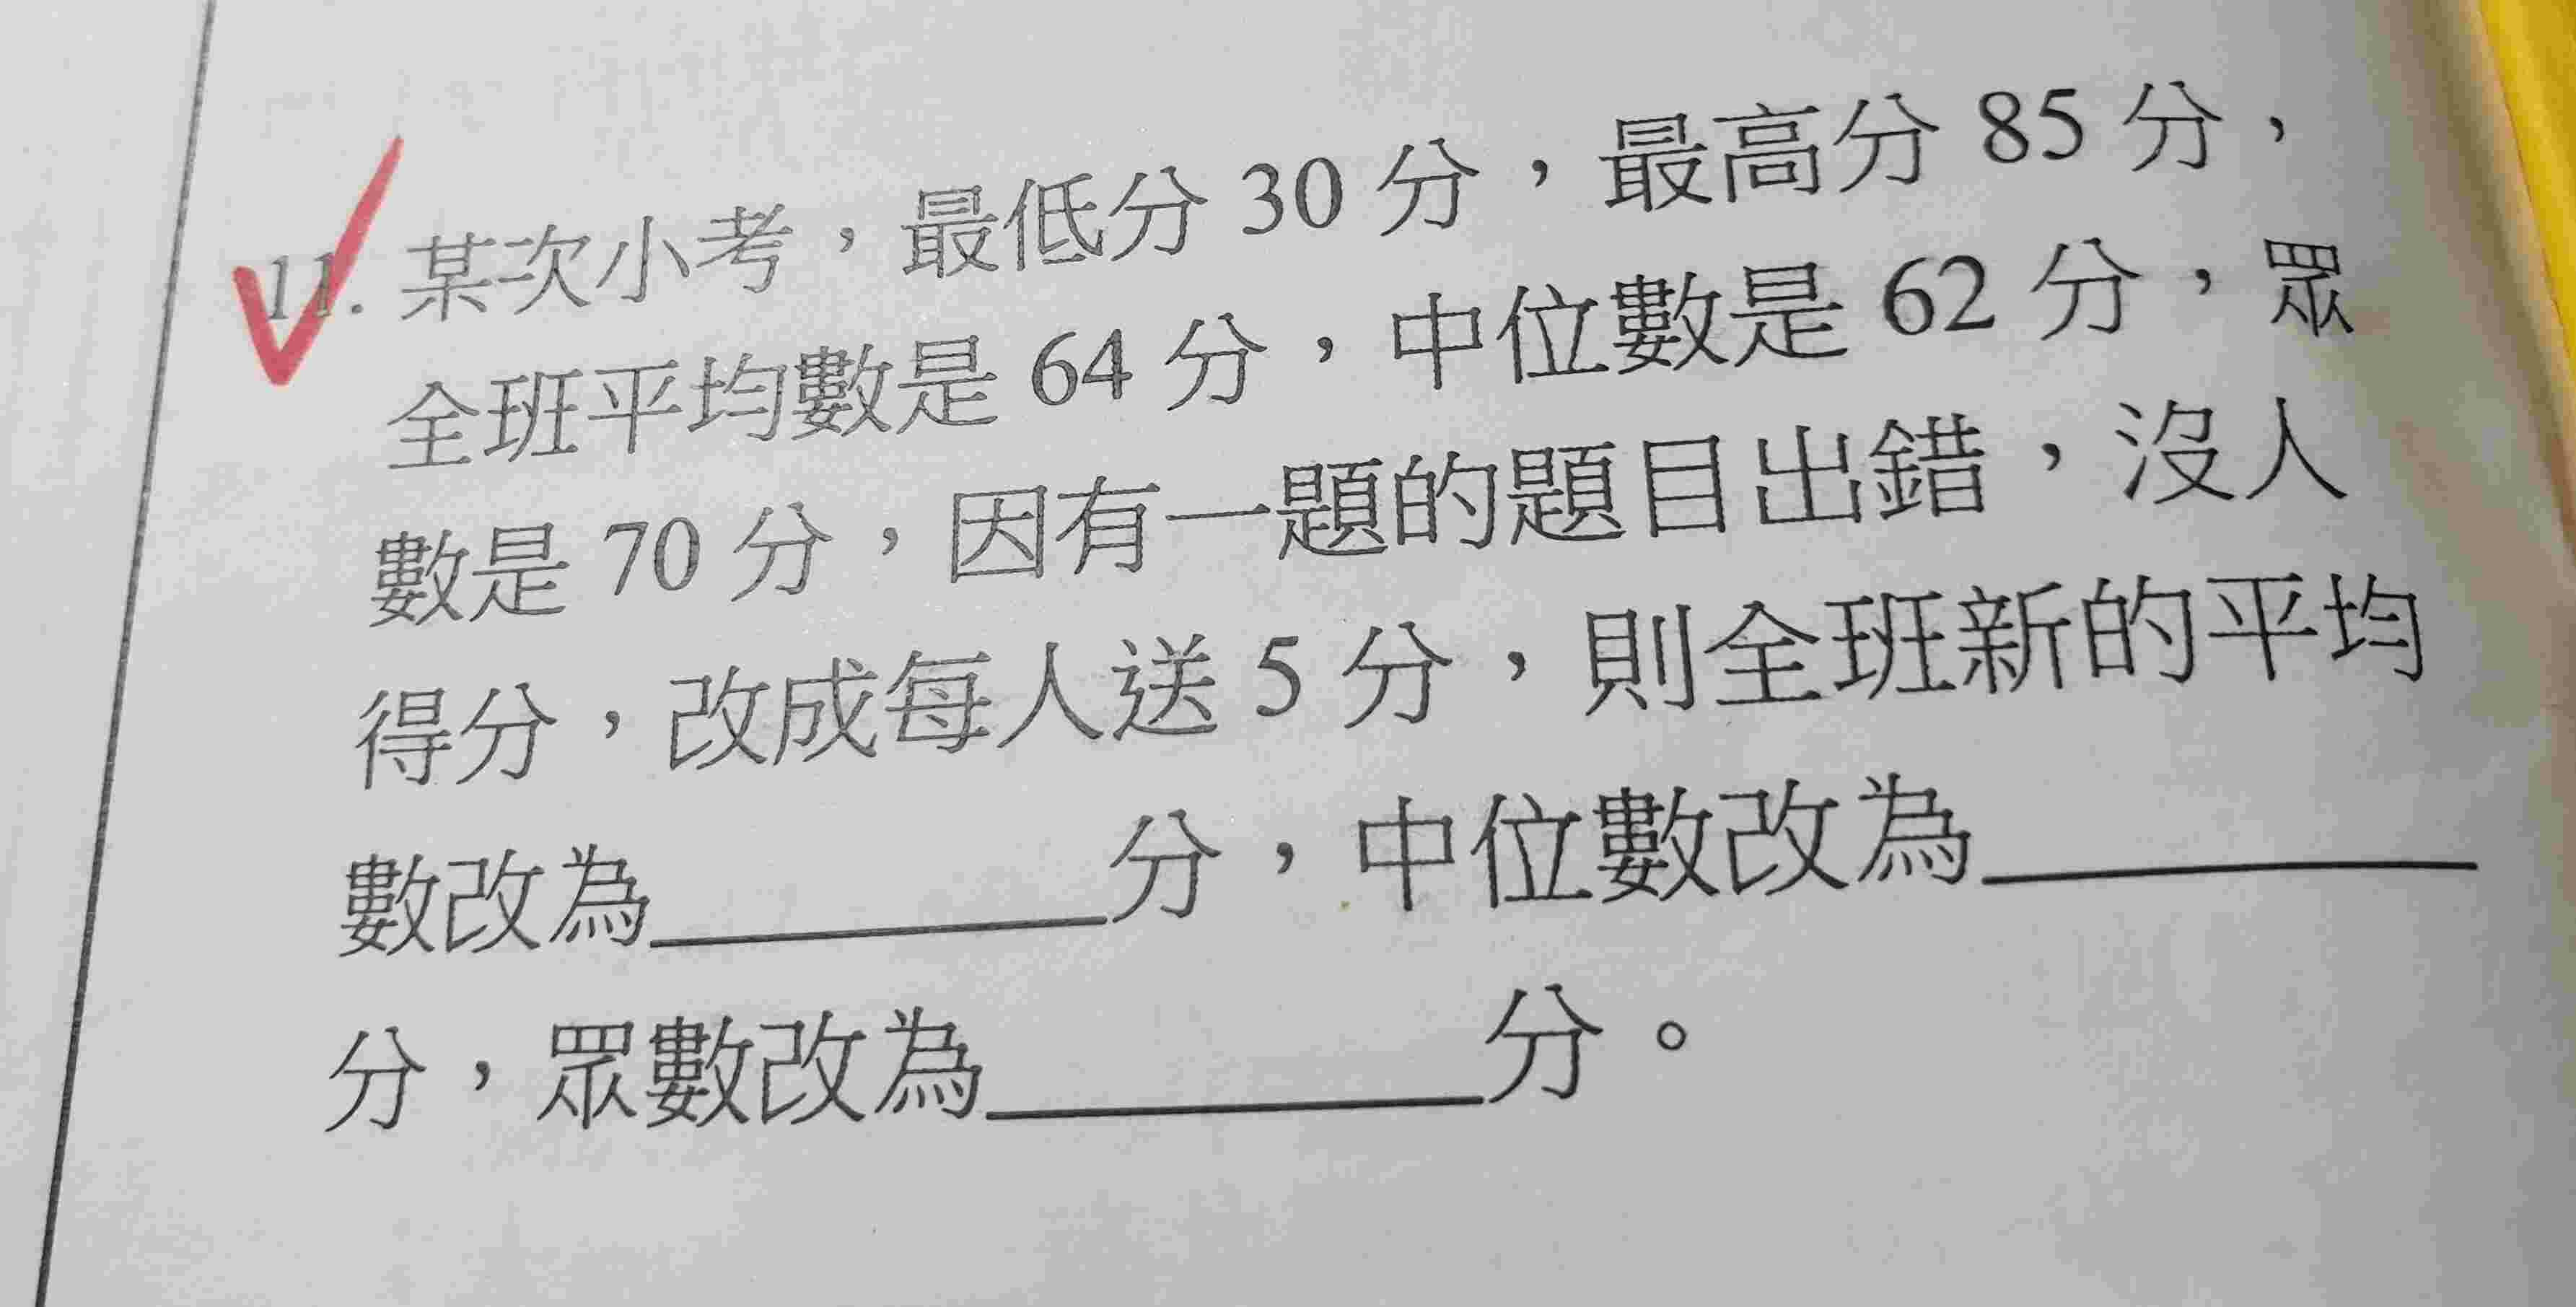 11. 某次小考，最低分 30 分，最高分 85 分，
全班平均數是 64 分，中位數是 62 分，眾
數是 70 分，因有一題的題目出錯，沒人
得分，改成每人送 5 分，則全班新的平均
數改為________分，中位數改為________
分，眾數改為________分。